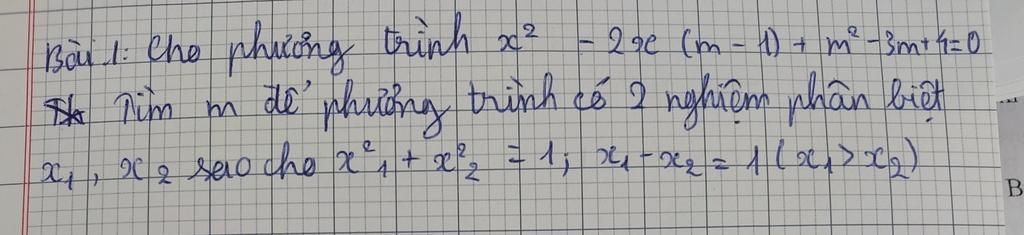 Bài 1: Cho phương trình x² - 2x (m - 1) + m² - 3m + 4 = 0
Tìm m để phương trình có 2 nghiệm phân biệt
x₁, x₂ sao cho x²₁ + x²₂ = 1; x₁ - x₂ = 1 (x₁ > x₂)
B